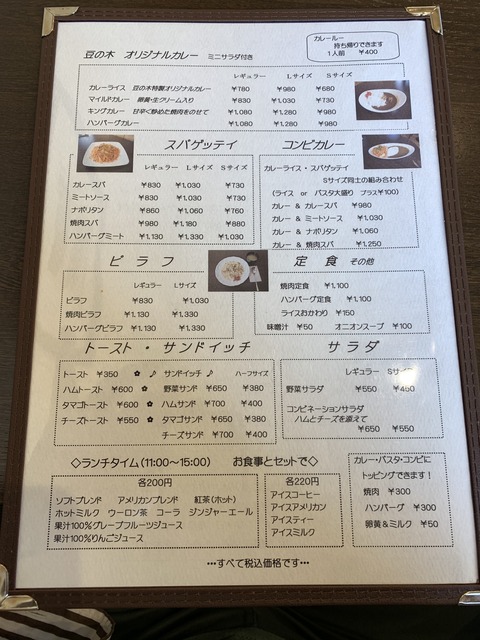 豆の木 オリジナルカレー ミニサラダ付き
カレールー
持ち帰りできます
1人前 ¥400
レギュラー Lサイズ Sサイズ
カレーライス 豆の木特製オリジナルカレー ¥780 ¥980 ¥680
マイルドカレー 卵黄・生クリーム入り ¥830 ¥1,030 ¥730
キングカレー 甘辛く炒めた焼肉をのせて ¥1,080 ¥1,280 ¥980
ハンバーグカレー ¥1,080 ¥1,280 ¥980
スパゲッテイ
レギュラー Lサイズ Sサイズ
カレースパ ¥830 ¥1,030 ¥730
ミートソース ¥830 ¥1,030 ¥730
ナポリタン ¥860 ¥1,060 ¥760
焼肉スパ ¥980 ¥1,180 ¥880
ハンバーグミート ¥1,130 ¥1,330 ¥1,030
コンビカレー
カレーライス・スパゲッテイ
Sサイズ同士の組み合わせ
(ライス or パスタ大盛り プラス¥100)
カレー & カレースパ ¥980
カレー & ミートソース ¥1,030
カレー & ナポリタン ¥1,060
カレー & 焼肉スパ ¥1,250
ピラフ
レギュラー Lサイズ
ピラフ ¥830 ¥1,030
焼肉ピラフ ¥1,130 ¥1,330
ハンバーグピラフ ¥1,130 ¥1,330
定食 その他
焼肉定食 ¥1,100
ハンバーグ定食 ¥1,100
ライスおかわり ¥150
味噌汁 ¥50 オニオンスープ ¥100
トースト・サンドイッチ
トースト ¥350 ✿ ♪ サンドイッチ ♪ ハーフサイズ
ハムトースト ¥600 ✿ 野菜サンド ¥650 ¥380
タマゴトースト ¥600 ✿ ハムサンド ¥700 ¥400
チーズトースト ¥550 ✿ タマゴサンド ¥650 ¥380
チーズサンド ¥700 ¥400
サラダ
レギュラー Sサイズ
野菜サラダ ¥550 ¥450
コンビネーションサラダ
ハムとチーズを添えて
¥650 ¥550
◇ランチタイム(11:00〜15:00) お食事とセットで◇
各200円
ソフトブレンド アメリカンブレンド 紅茶(ホット)
ホットミルク ウーロン茶 コーラ ジンジャーエール
果汁100%グレープフルーツジュース
果汁100%りんごジュース
各220円
アイスコーヒー
アイスアメリカン
アイスティー
アイスミルク
カレー・パスタ・コンビに
トッピングできます!
焼肉 ¥300
ハンバーグ ¥300
卵黄&ミルク ¥50
•••すべて税込価格です•••